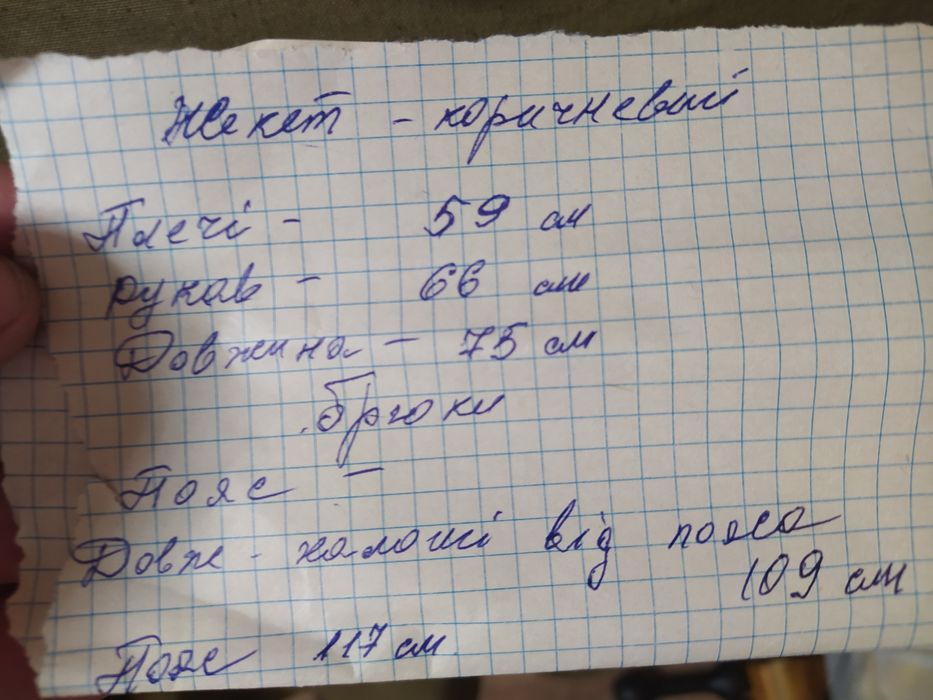 Жекет - коричневий
Плечі - 59 см
рукав - 66 см
Довжина - 75 см
брюки
Пояс -
Довж - халоші від пояса
109 см
Пояс 117 см